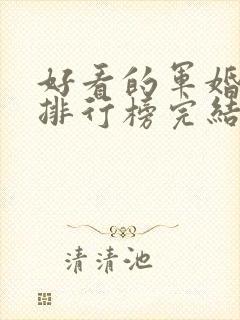 好看的军婚
排行榜完结
清清池